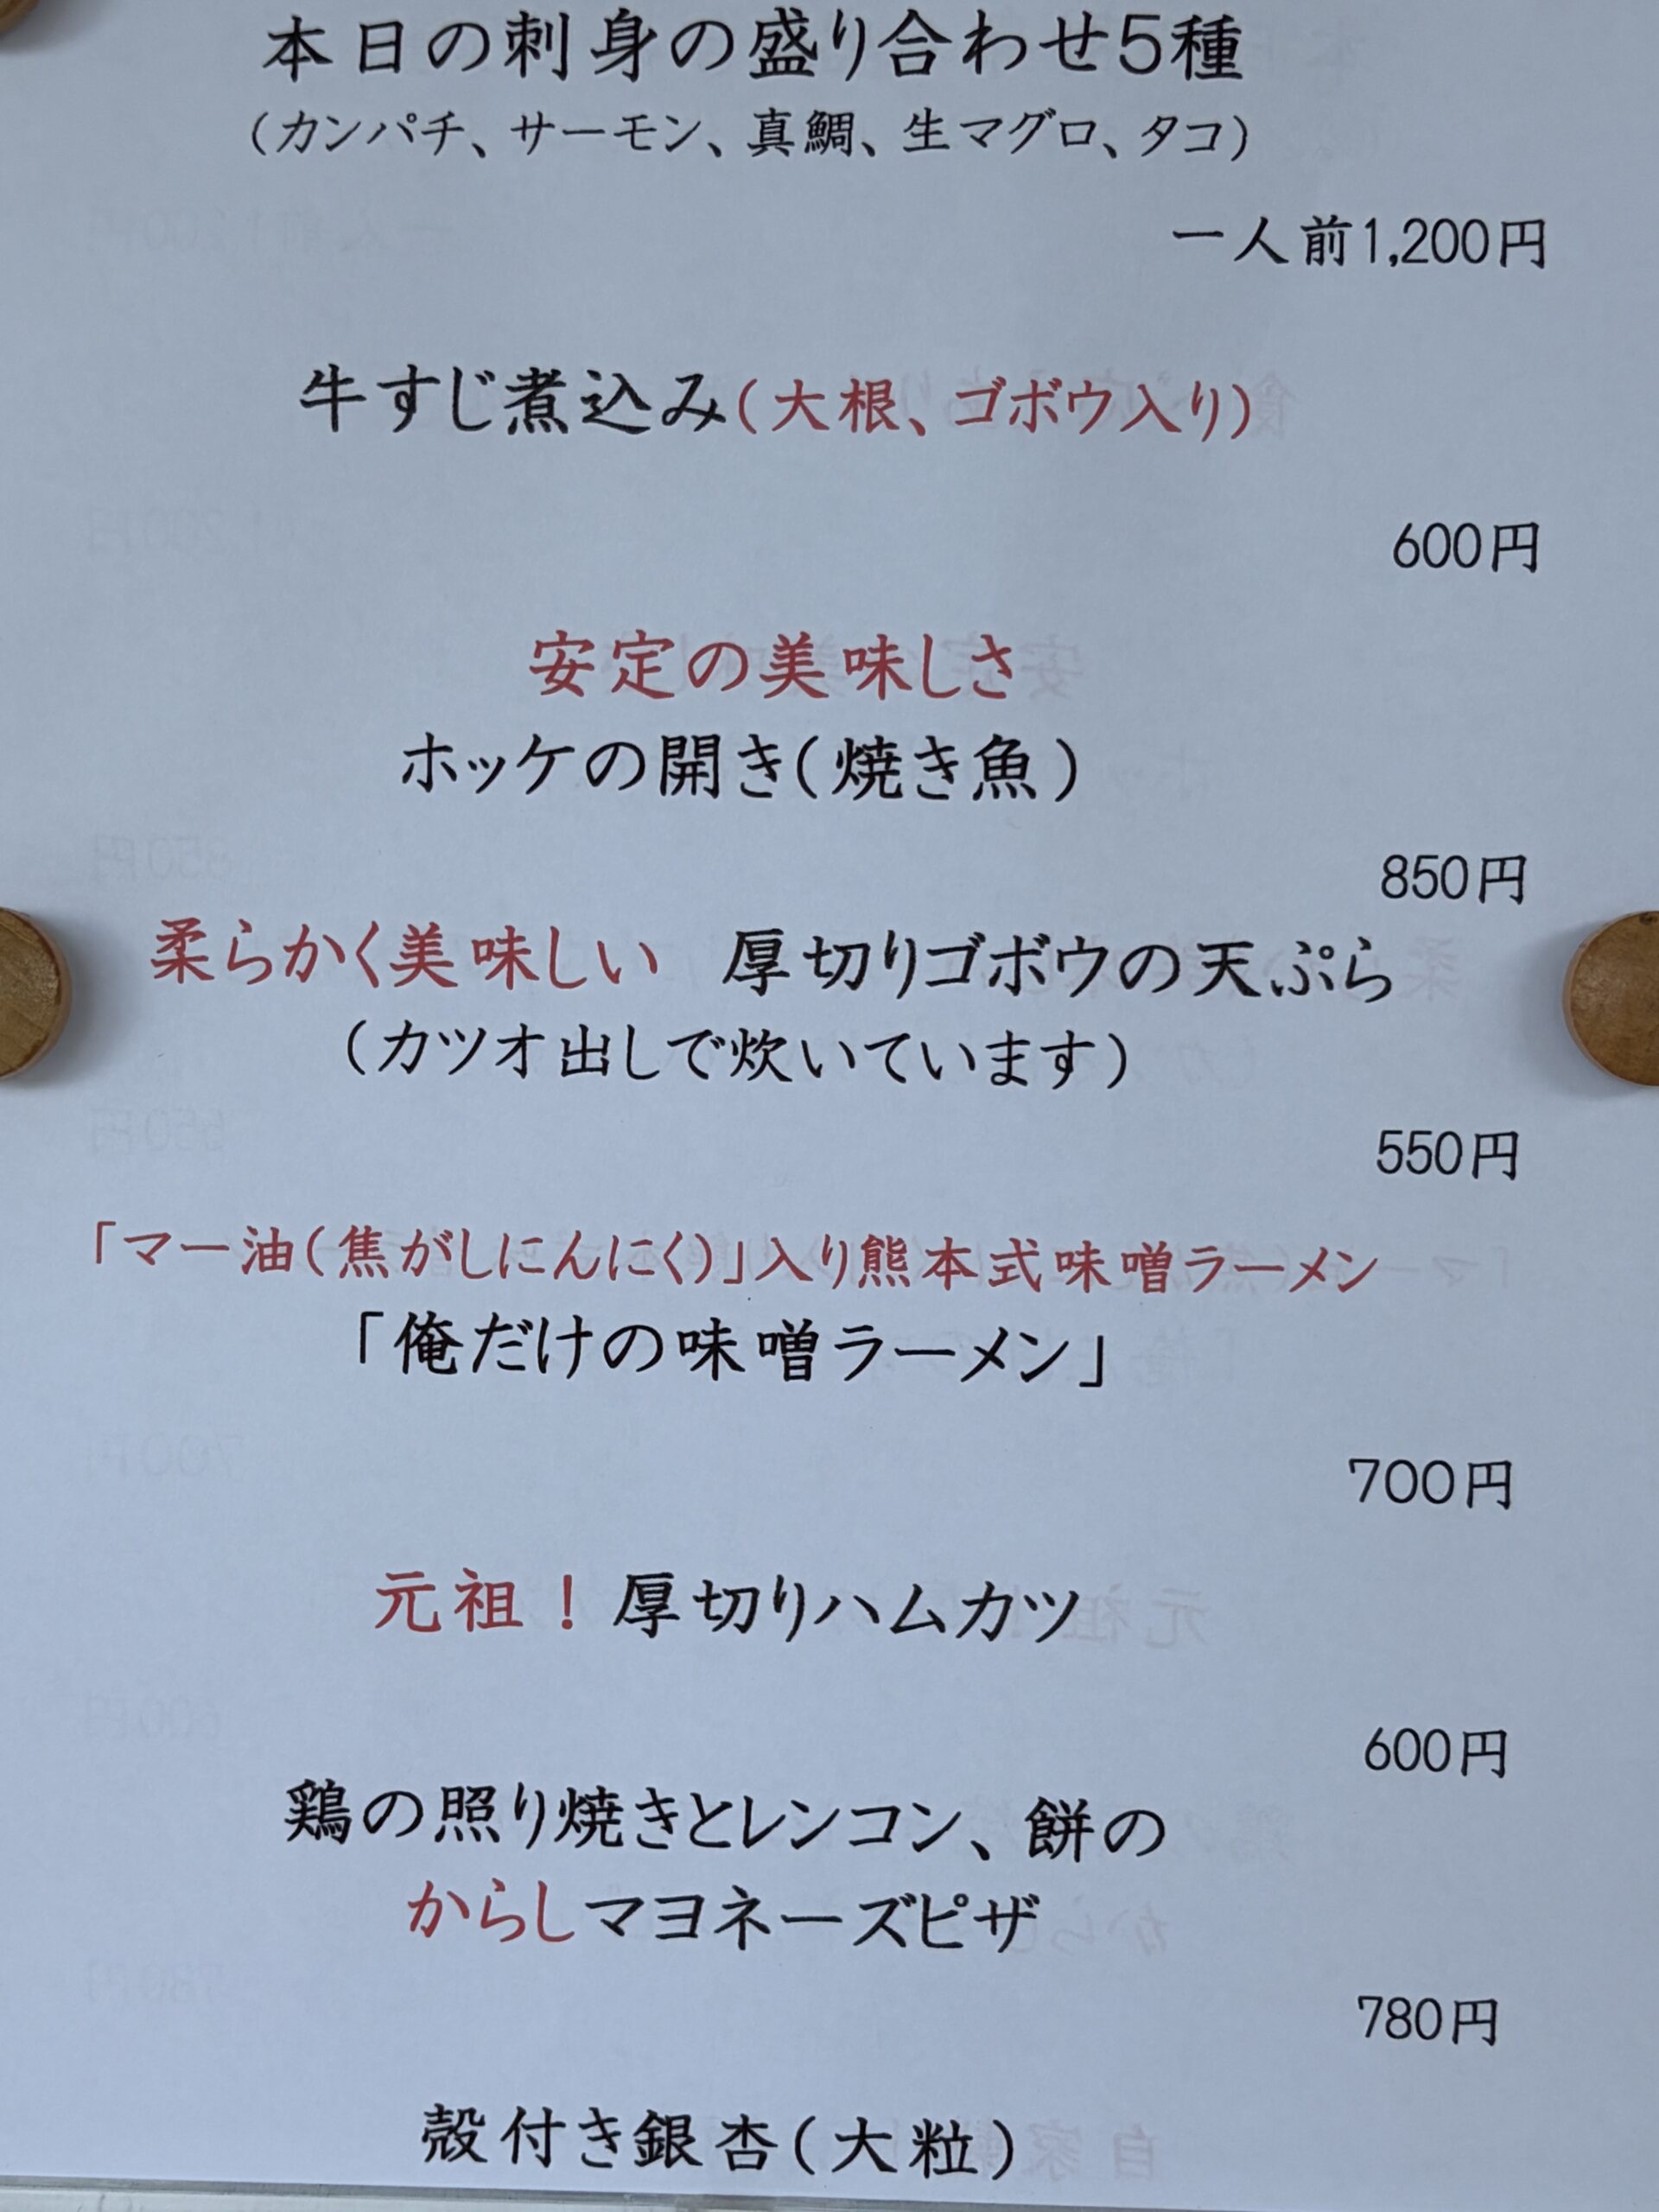 本日の刺身の盛り合わせ5種
（カンパチ、サーモン、真鯛、生マグロ、タコ）
一人前1,200円
牛すじ煮込み（大根、ゴボウ入り）
600円
安定の美味しさ
ホッケの開き（焼き魚）
850円
柔らかく美味しい　厚切りゴボウの天ぷら
（カツオ出しで炊いています）
550円
「マー油（焦がしにんにく）」入り熊本式味噌ラーメン
「俺だけの味噌ラーメン」
700円
元祖！厚切りハムカツ
600円
鶏の照り焼きとレンコン、餅の
からしマヨネーズピザ
780円
殻付き銀杏（大粒）